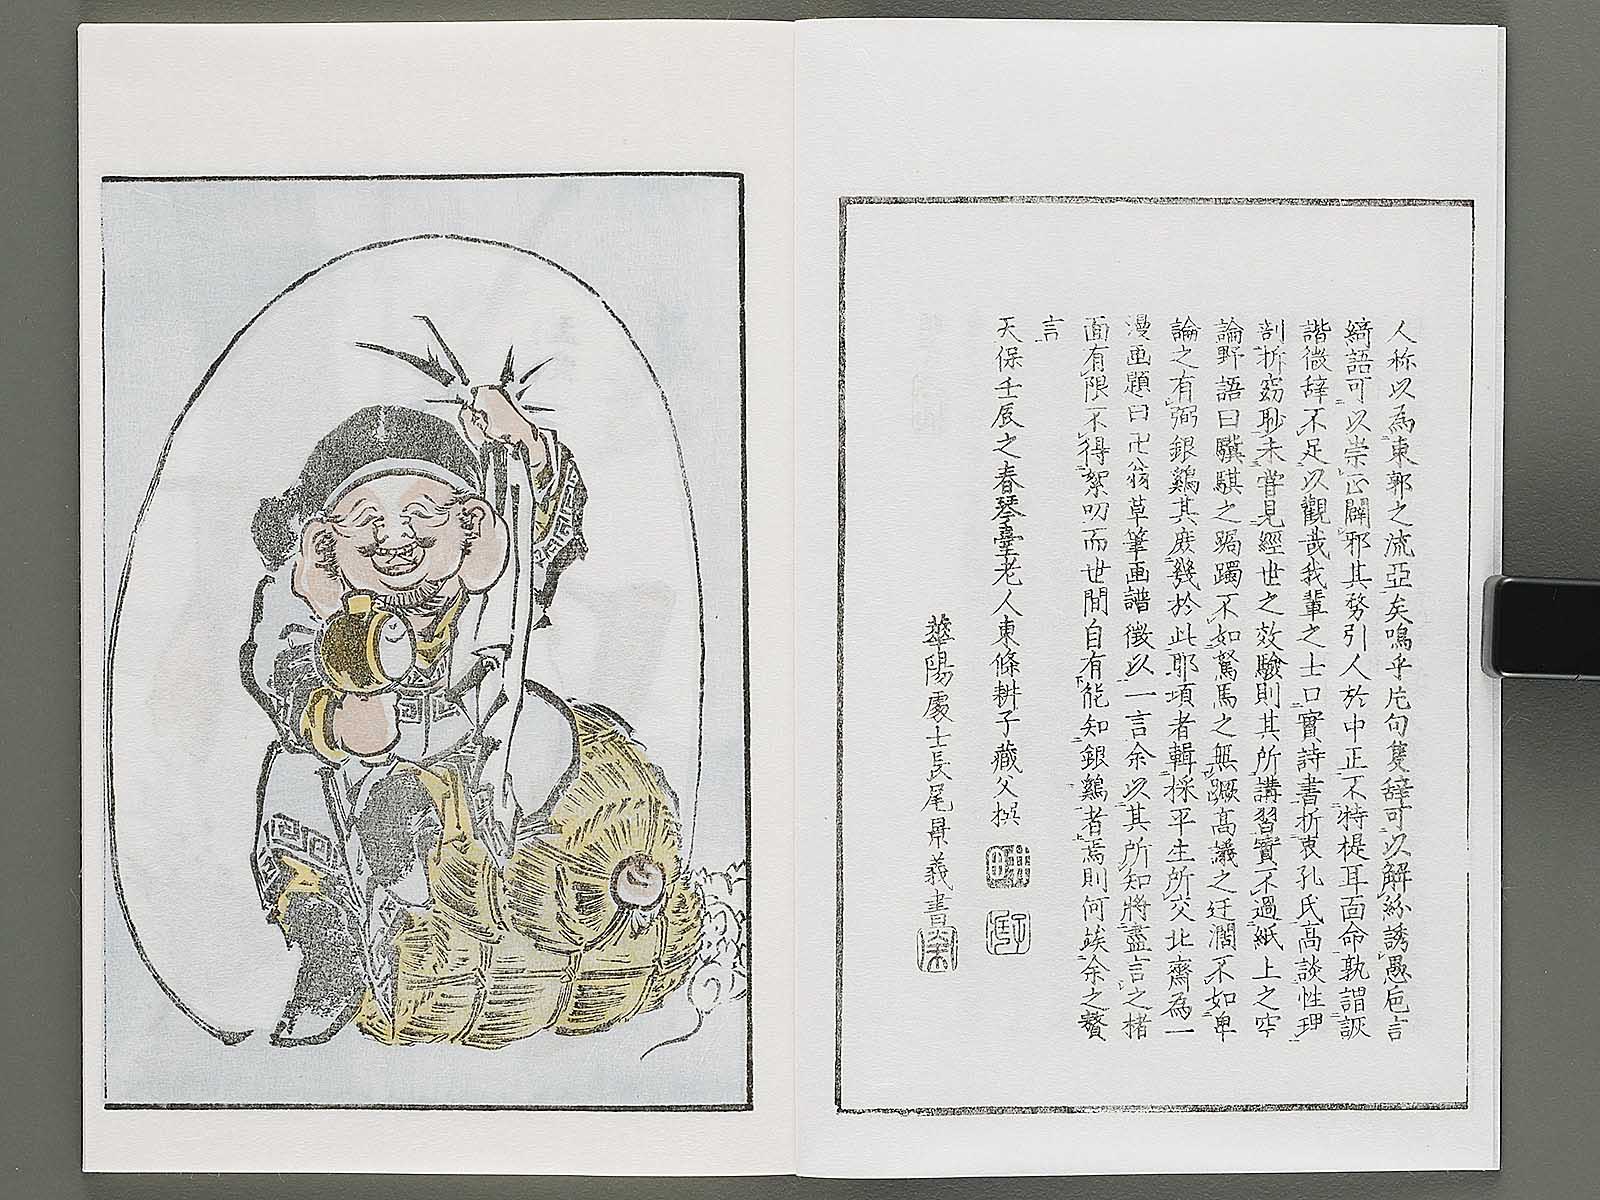 人称以為東郭之流亞矣嗚乎片句隻辞可以解紛誘愚卮言
綺語可以崇正闢邪其務引人於中正不特提耳面命孰謂詼
諧微辞不足以觀哉我輩之士口實詩書折衷孔氏高談性理
剖析窈眇未甞見經世之效驗則其所講習實不過紙上之空
論野語曰騏驥之跼躅不如駑馬之無蹶高議之迂濶不如卑
論之有弼銀鷄其庶幾於此耶頃者輯採平生所交北齋為一
漫画題曰卍翁草筆画譜徴以一言余以其所知將盡言之楮
面有限不得絮叨而世間自有能知銀鷄者焉則何竢余之贅
言
天保壬辰之春琴臺老人東條耕子蔵父撰
華陽處士長尾景義書